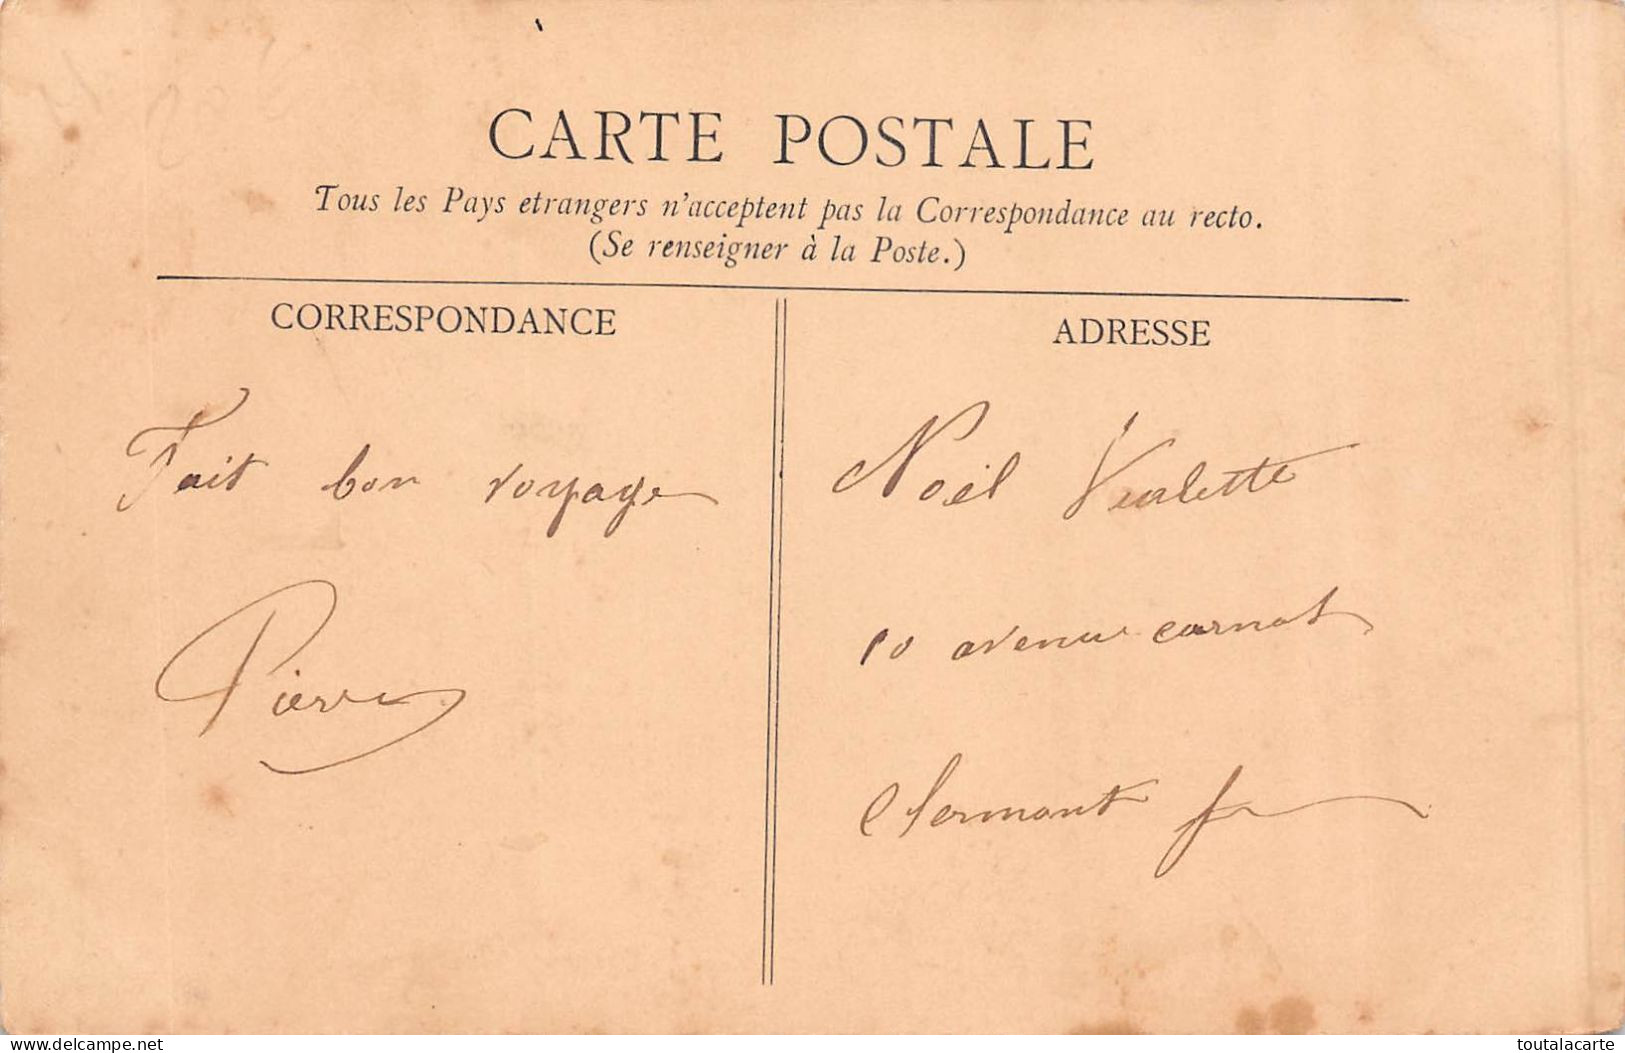 CARTE POSTALE
Tous les Pays etrangers n'acceptent pas la Correspondance au recto.
(Se renseigner à la Poste.)
CORRESPONDANCE
Fait bon voyage
Pierre
ADRESSE
Noël Vialette
10 avenue carnot
Clermont fr
delcampe.net
toutalacarte